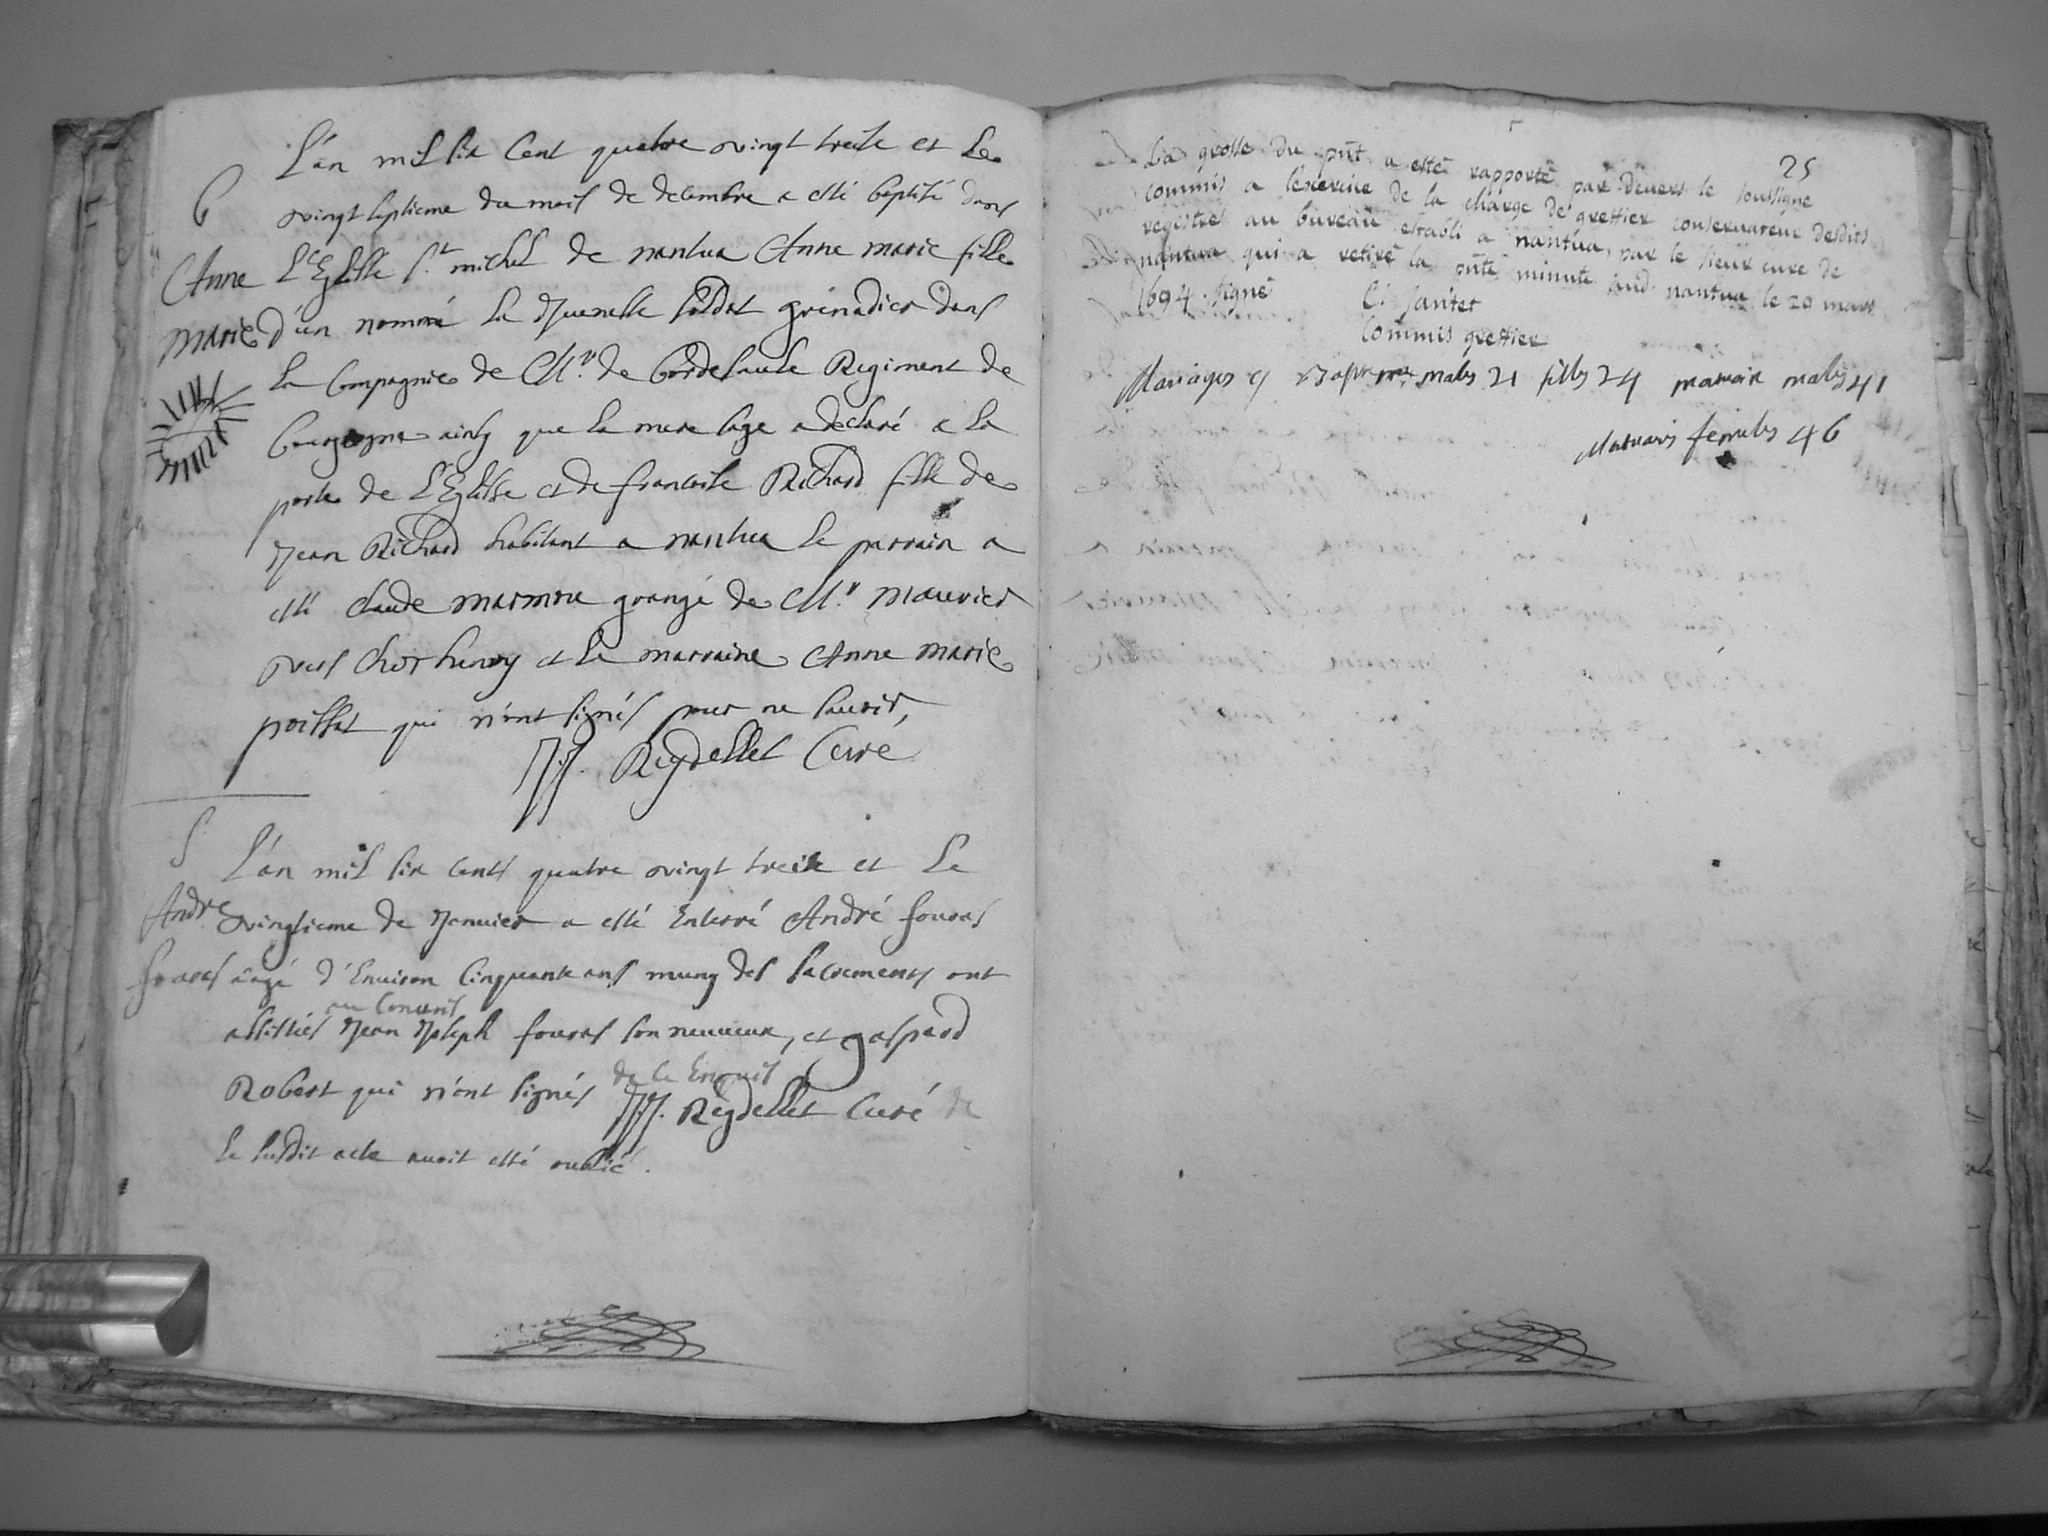 B
L'an mil six cent quatre vingt treise et le
vingt septieme du mois de decembre a esté baptisé dans
Anne
L'Eglise St. michel de nantua Anne marie fille
marie
d'un nommé la Jeunesse soldat grénadier dans
la Compagnie de Mr. de Regiment de
bourgogne ainsy que la mere sage a declaré a la
porte de L'Eglise et de francoise Richard fille de
Jean Richard habitant a nantua le parrain a
esté Claude marmou grangé de Mr. mauvier
vers et la marraine Anne marie
poissat qui n'ont signés pour ne sauoir,
J.J. Reydellet Curé
S
L'an mil six cents quatre vingt treise et le
André
vingtieme de Januier a esté Enterré André fouras
fouras
aagé d'Enuiron Cinquante ans muny des sacrements ont
au Conuois
assistés Jean Joseph fouras son neuueux, et gaspard
Robert qui n'ont signés de ce Enquis
J.J. Reydellet Curé
le susdit acte auoit esté oublié.
25
La grosse du pnt a esté rapporté par deuers le soussigné
commis a lexercice de la charge de greffier conseruateur desdits
registres au bureau establi a nantua, par le sieur curé de
nantua qui a retiré la pnte minute aud nantua le 20 mars
1694. signé C. Jantet
Commis greffier
Mariages 9 Bapmes males 21 filles 24 mortuair males 41
Mortuairs femeles 46